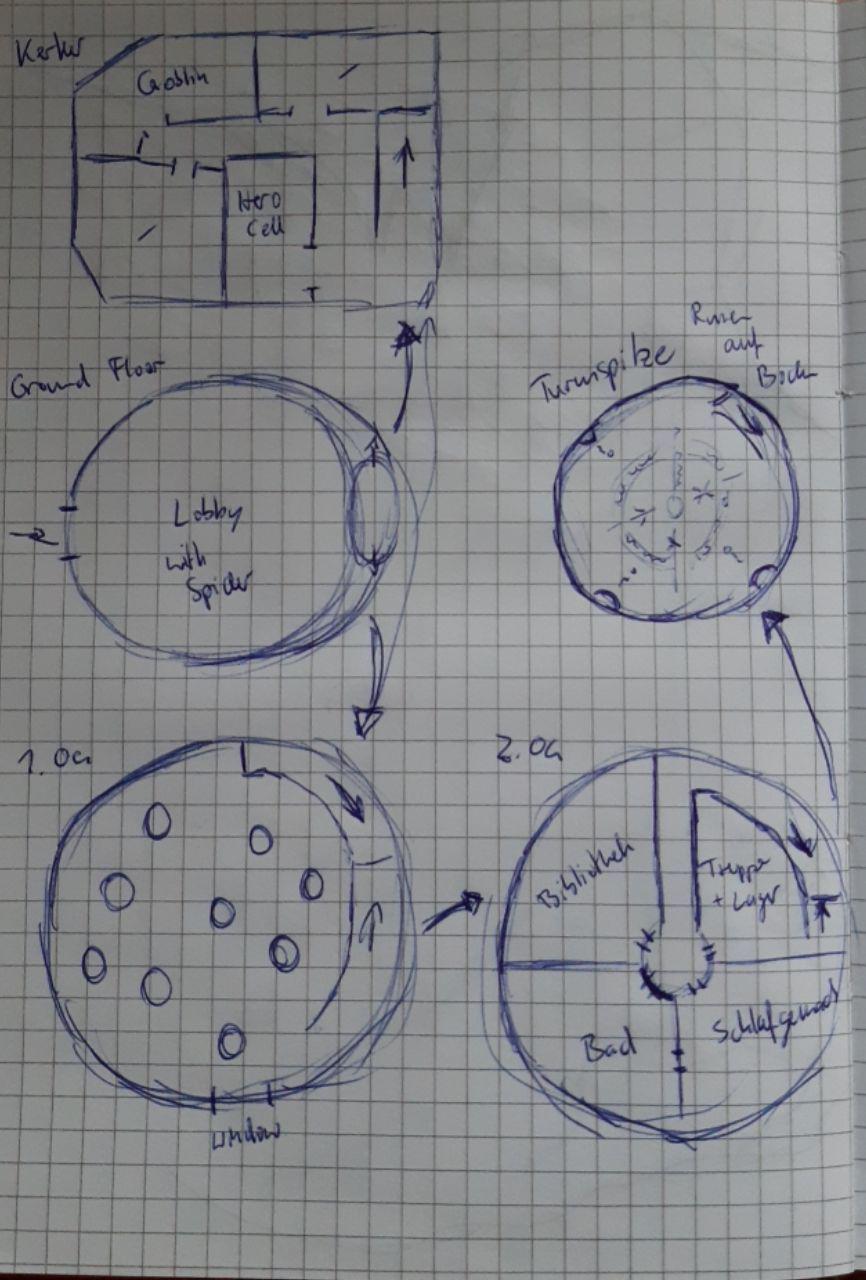 Kerker
Goblin
Hero
Cell
Ground Floor
Lobby
with
Spider
Turmspitze
Runen
auf
Boden
1. OG
window
2. OG
Bibliothek
Treppe
+ Lager
Bad
Schlafgemach